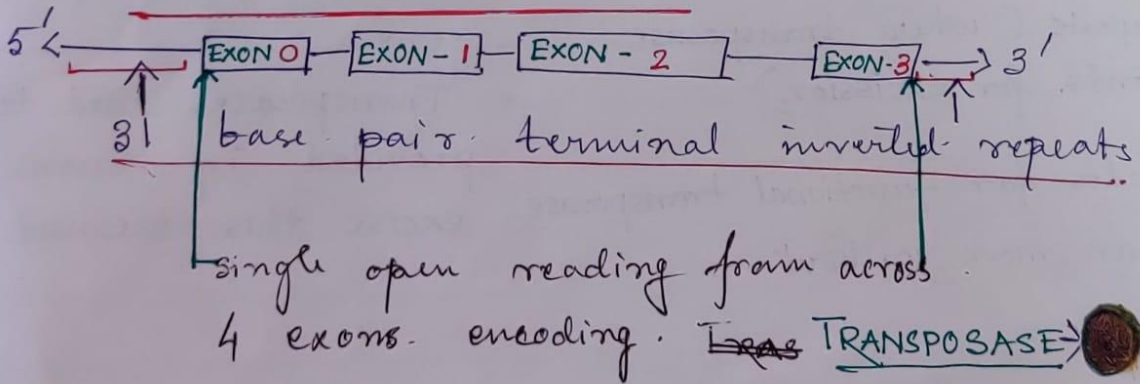 5' EXON 0 EXON-1 EXON-2 EXON-3 3'
31 base pair terminal inverted repeats
single open reading fram across
4 exons. encoding. TRANSPOSASE